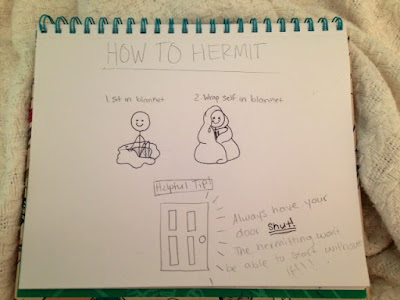 HOW TO HERMIT
1. sit in blanket
2. Wrap self in blanket
Helpful Tip!
Always have your
door shut!
The hermitting won't
be able to start without
it!!!